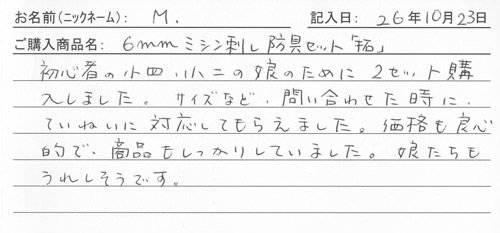 お名前(ニックネーム): M. 記入日: 26年10月23日
ご購入商品名: 6mmミシン刺し防具セット「拓」
初心者の小四、小二の娘のために2セット購
入しました。サイズなど、問い合わせた時に、
ていねいに対応してもらえました。価格も良心
的で、商品もしっかりしていました。娘たちも
うれしそうです。